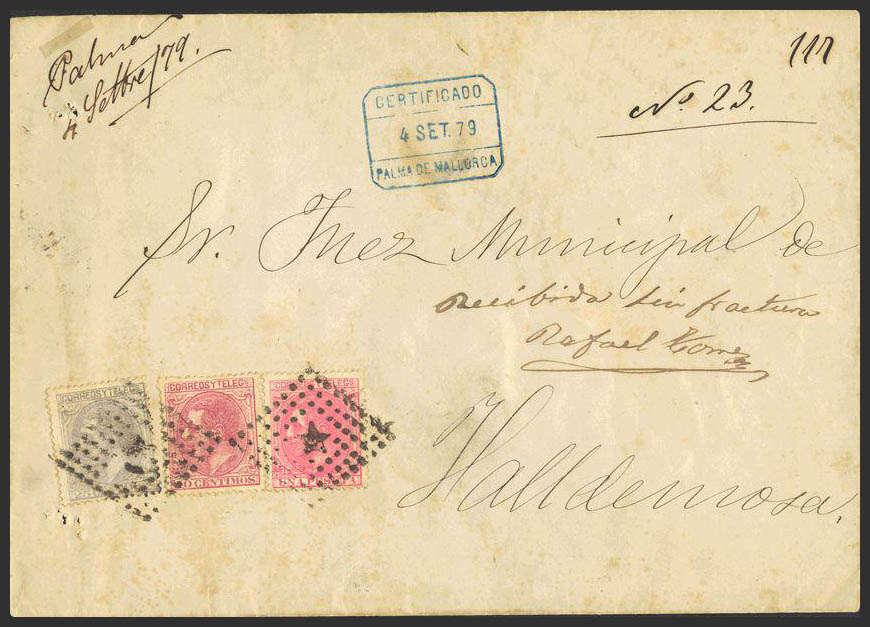 Palma
4 Setbre/79.
CERTIFICADO
4 SET. 79
PALMA DE MALLORCA
117
No. 23.
Sr. Juez Municipal de
Recibida sin fractura
Rafael
Valldemosa.
CORREOS Y TELEGS
CORREOS Y TELEGS
0 CENTIMOS
CORREOS Y TELEGS
UNA PESETA